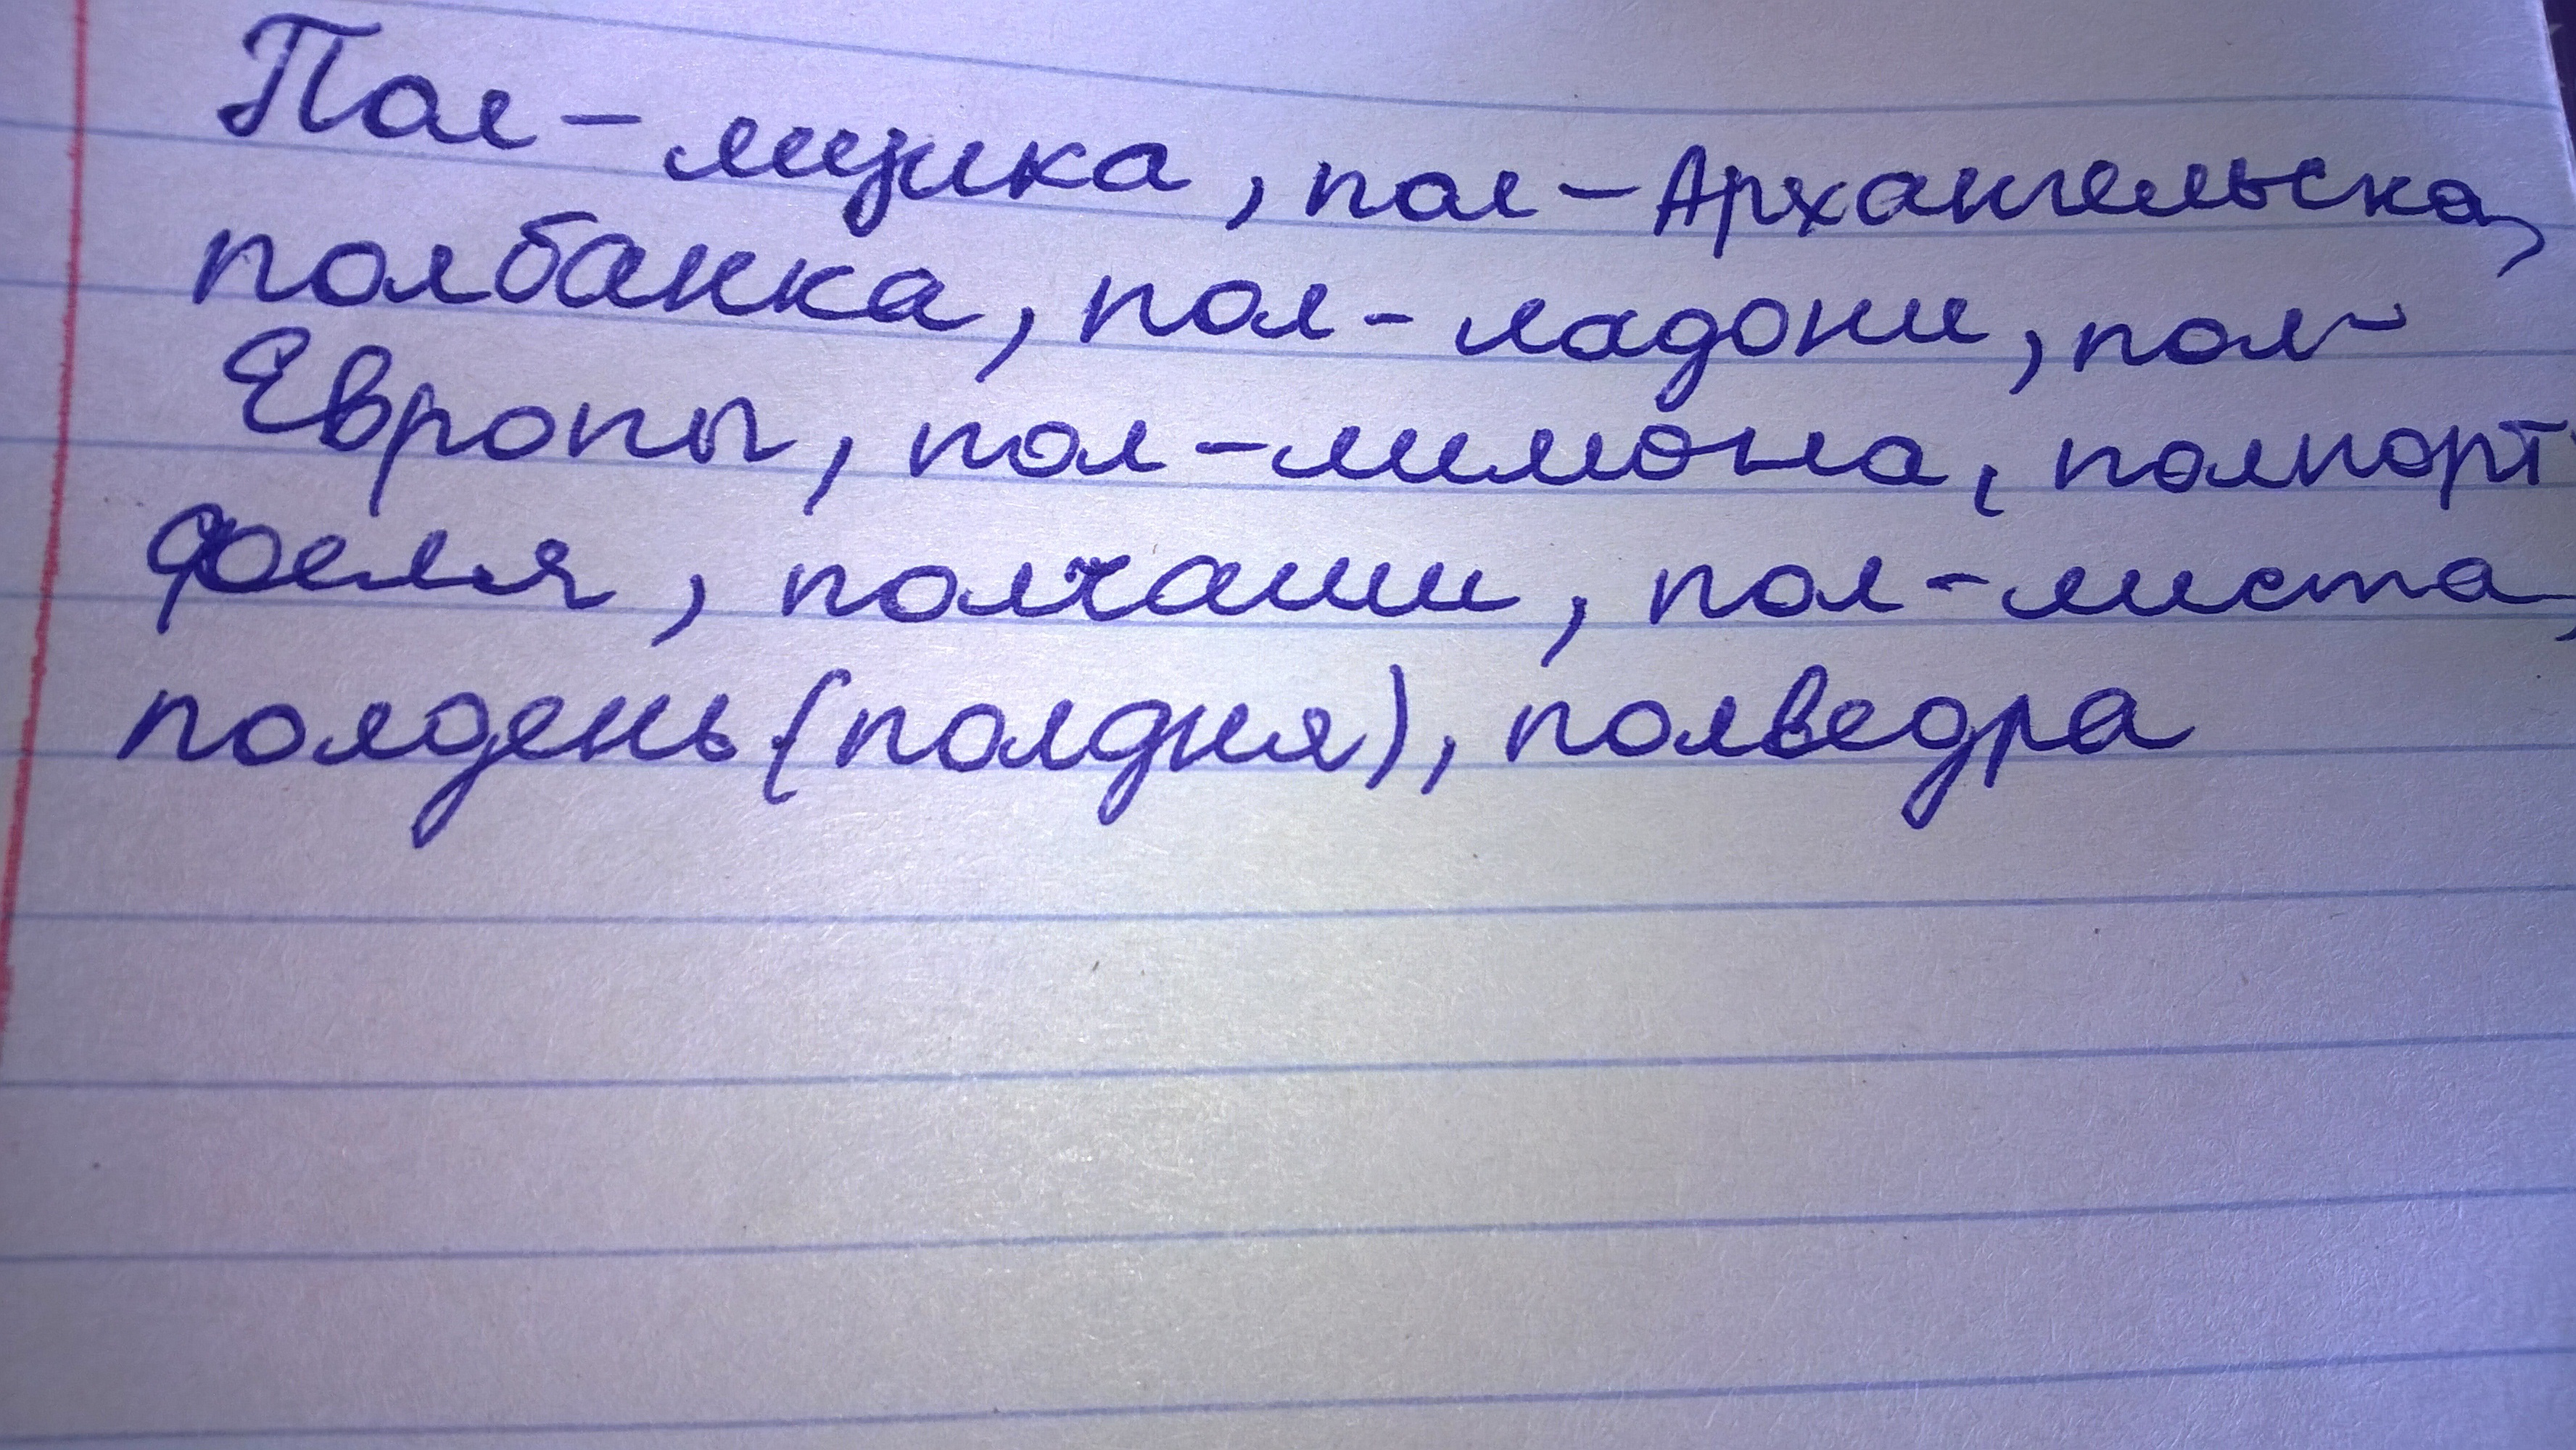 Пол-ящика, пол-Архангельска,
полбанка, пол-ладони, пол-
Европы, пол-лимона, полпорт
феля, полчаши, пол-листа,
полдень (полдня), полведра